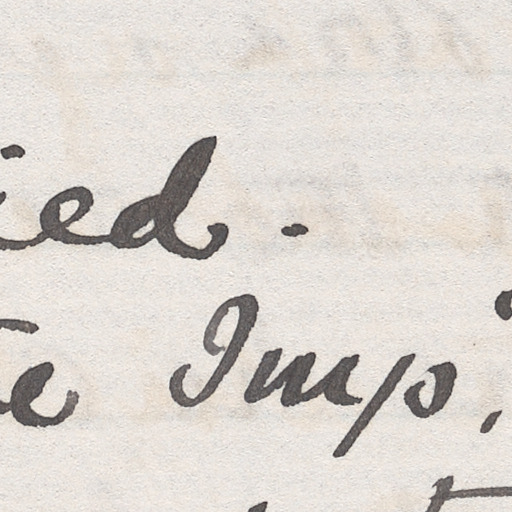 ied.
te Imp